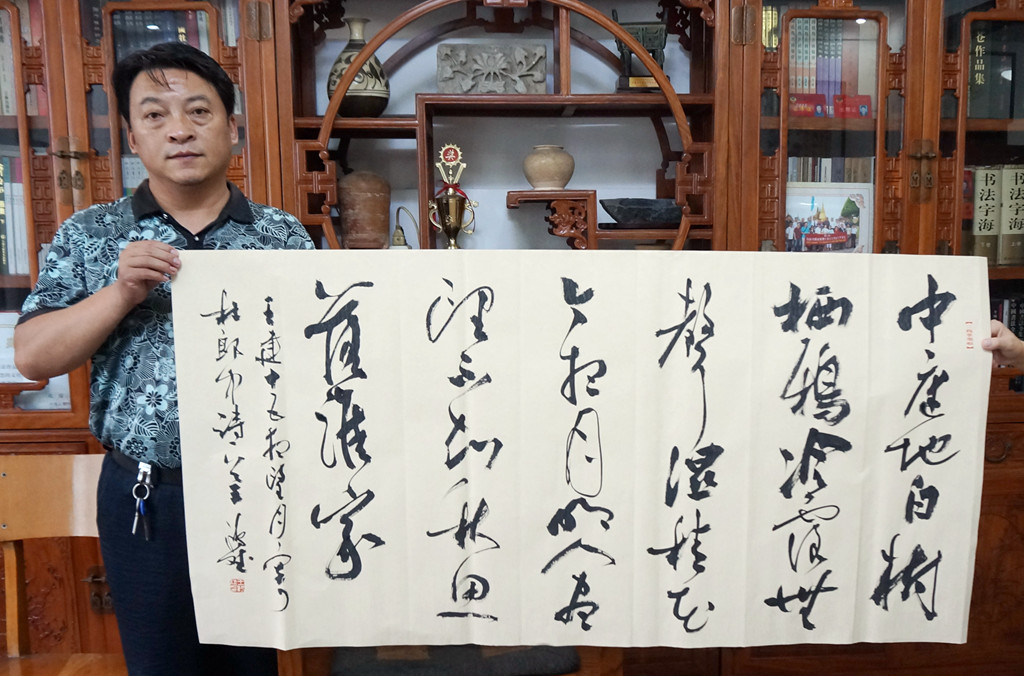 中庭地白樹
栖鴉冷露無
聲濕桂花
今夜月明人盡
望不知秋思
落誰家
王建十五夜望月寄
杜郎中詩
作品集
书法字海
书法字海